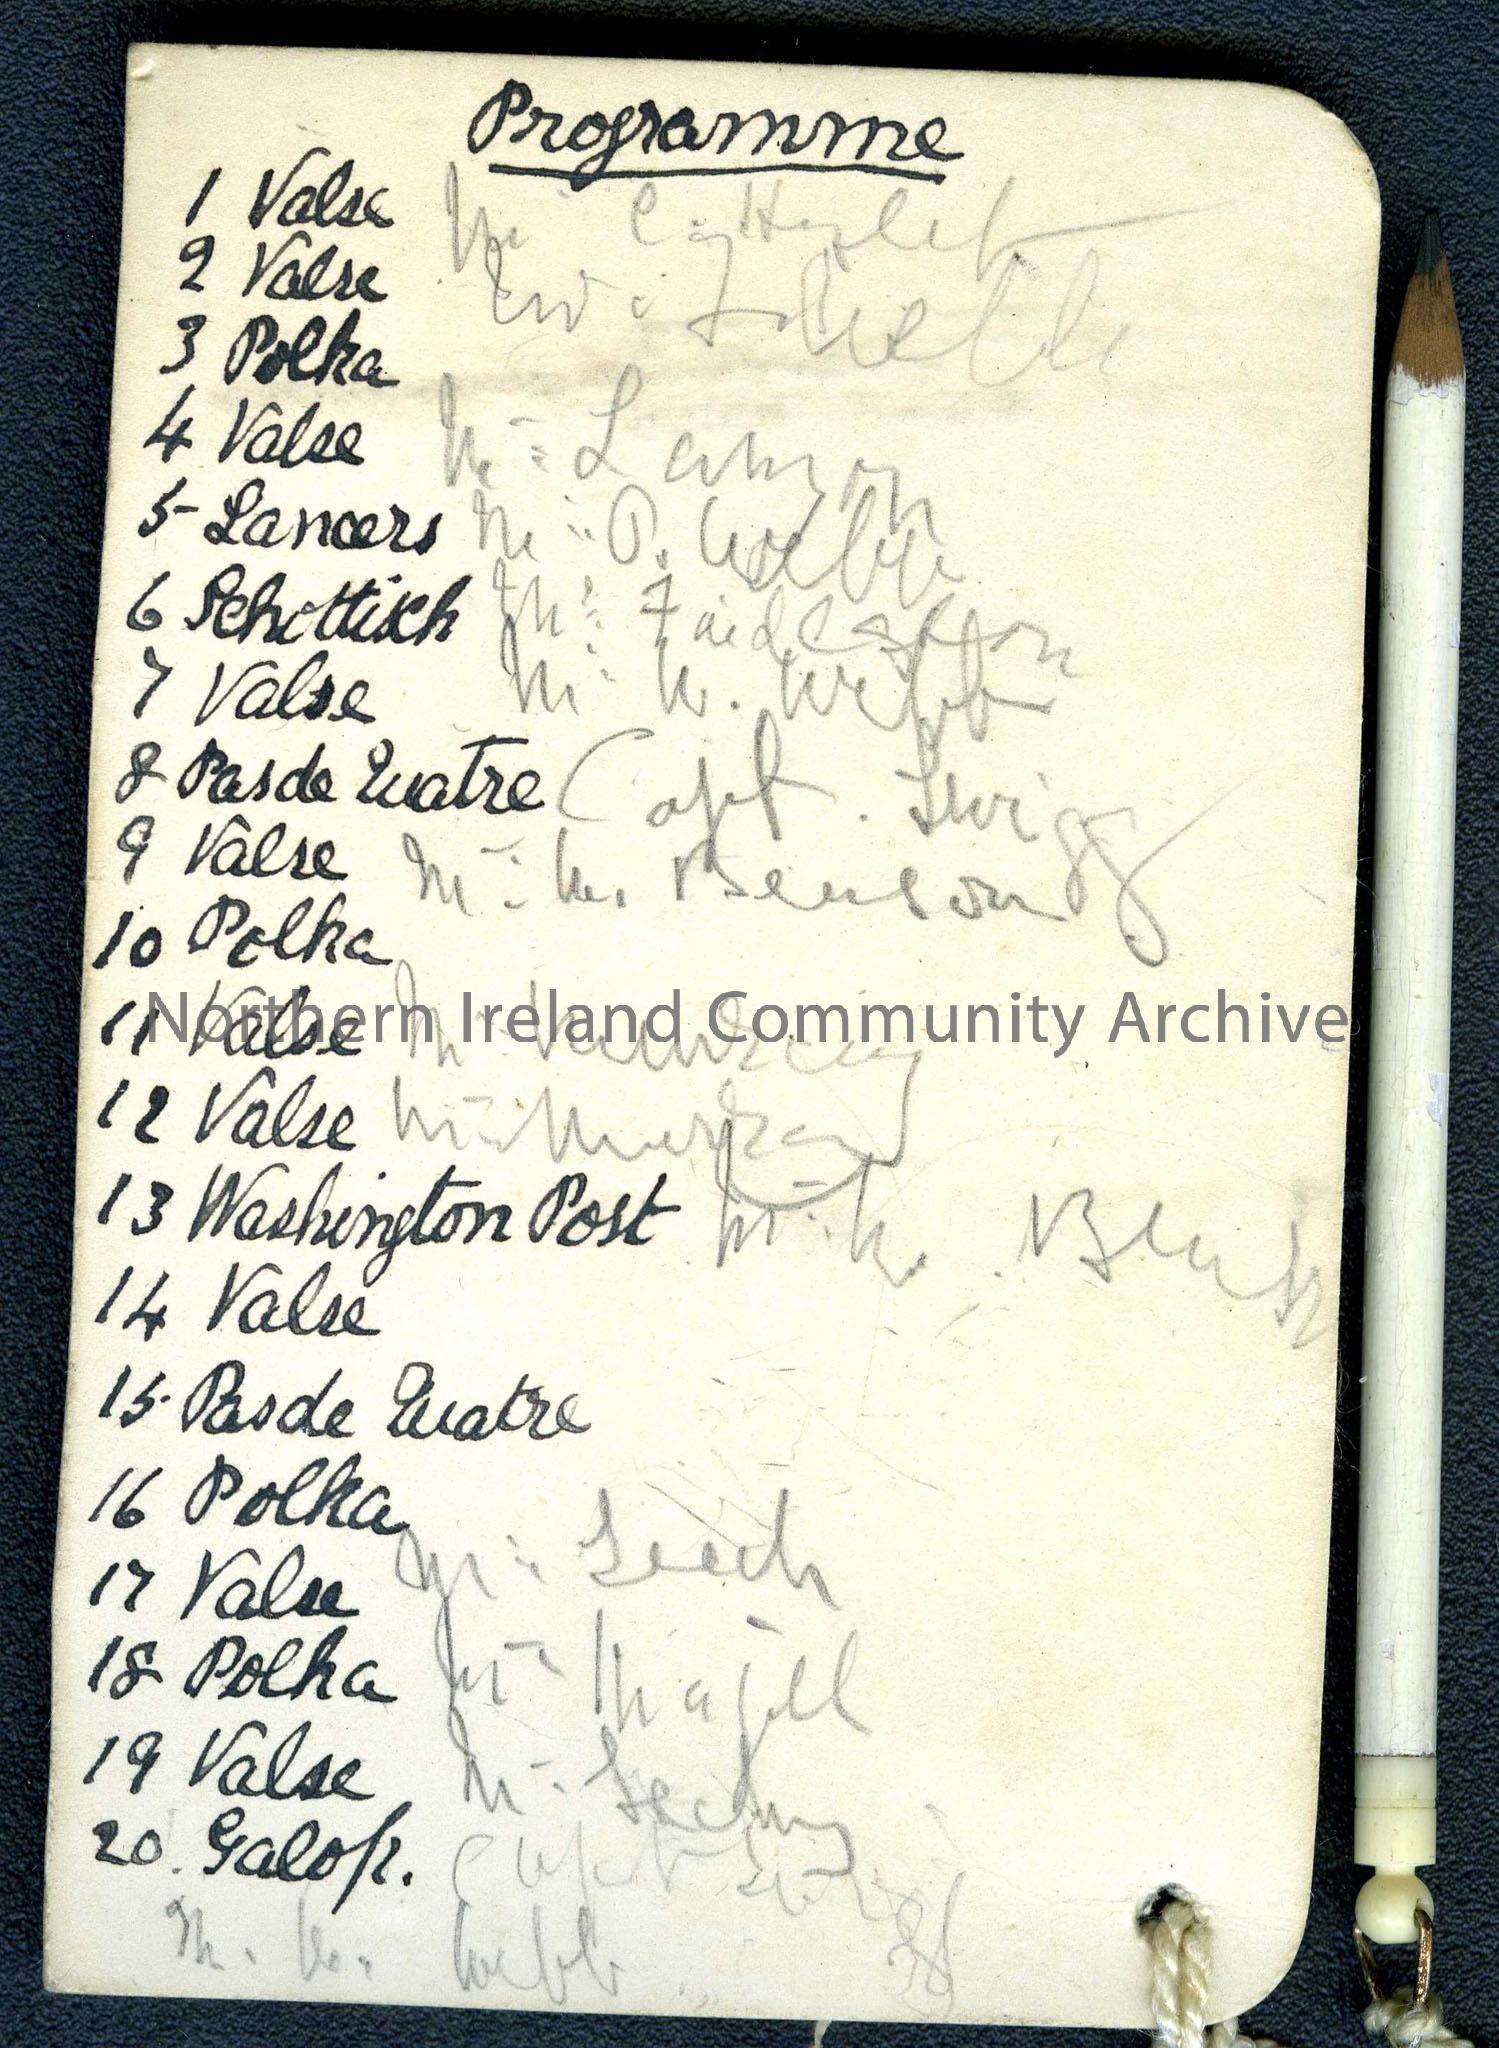 Programme
1 Valse Mr C
2 Valse
3 Polka
4 Valse Mr
5 Lancers Mr P. Webb
6 Schottisch Mr
7 Valse Mr W. Webb
8 Pas de Quatre Capt. Twigg
9 Valse Mr W. Benson
10 Polka
11 Valse Mr
12 Valse Mr
13 Washington Post Mr W.
14 Valse
15 Pas de Quatre
16 Polka
17 Valse Mr Leech
18 Polka Mr Magill
19 Valse Mr
20. Galop. Capt Twigg
Mr W. Webb
Northern Ireland Community Archive